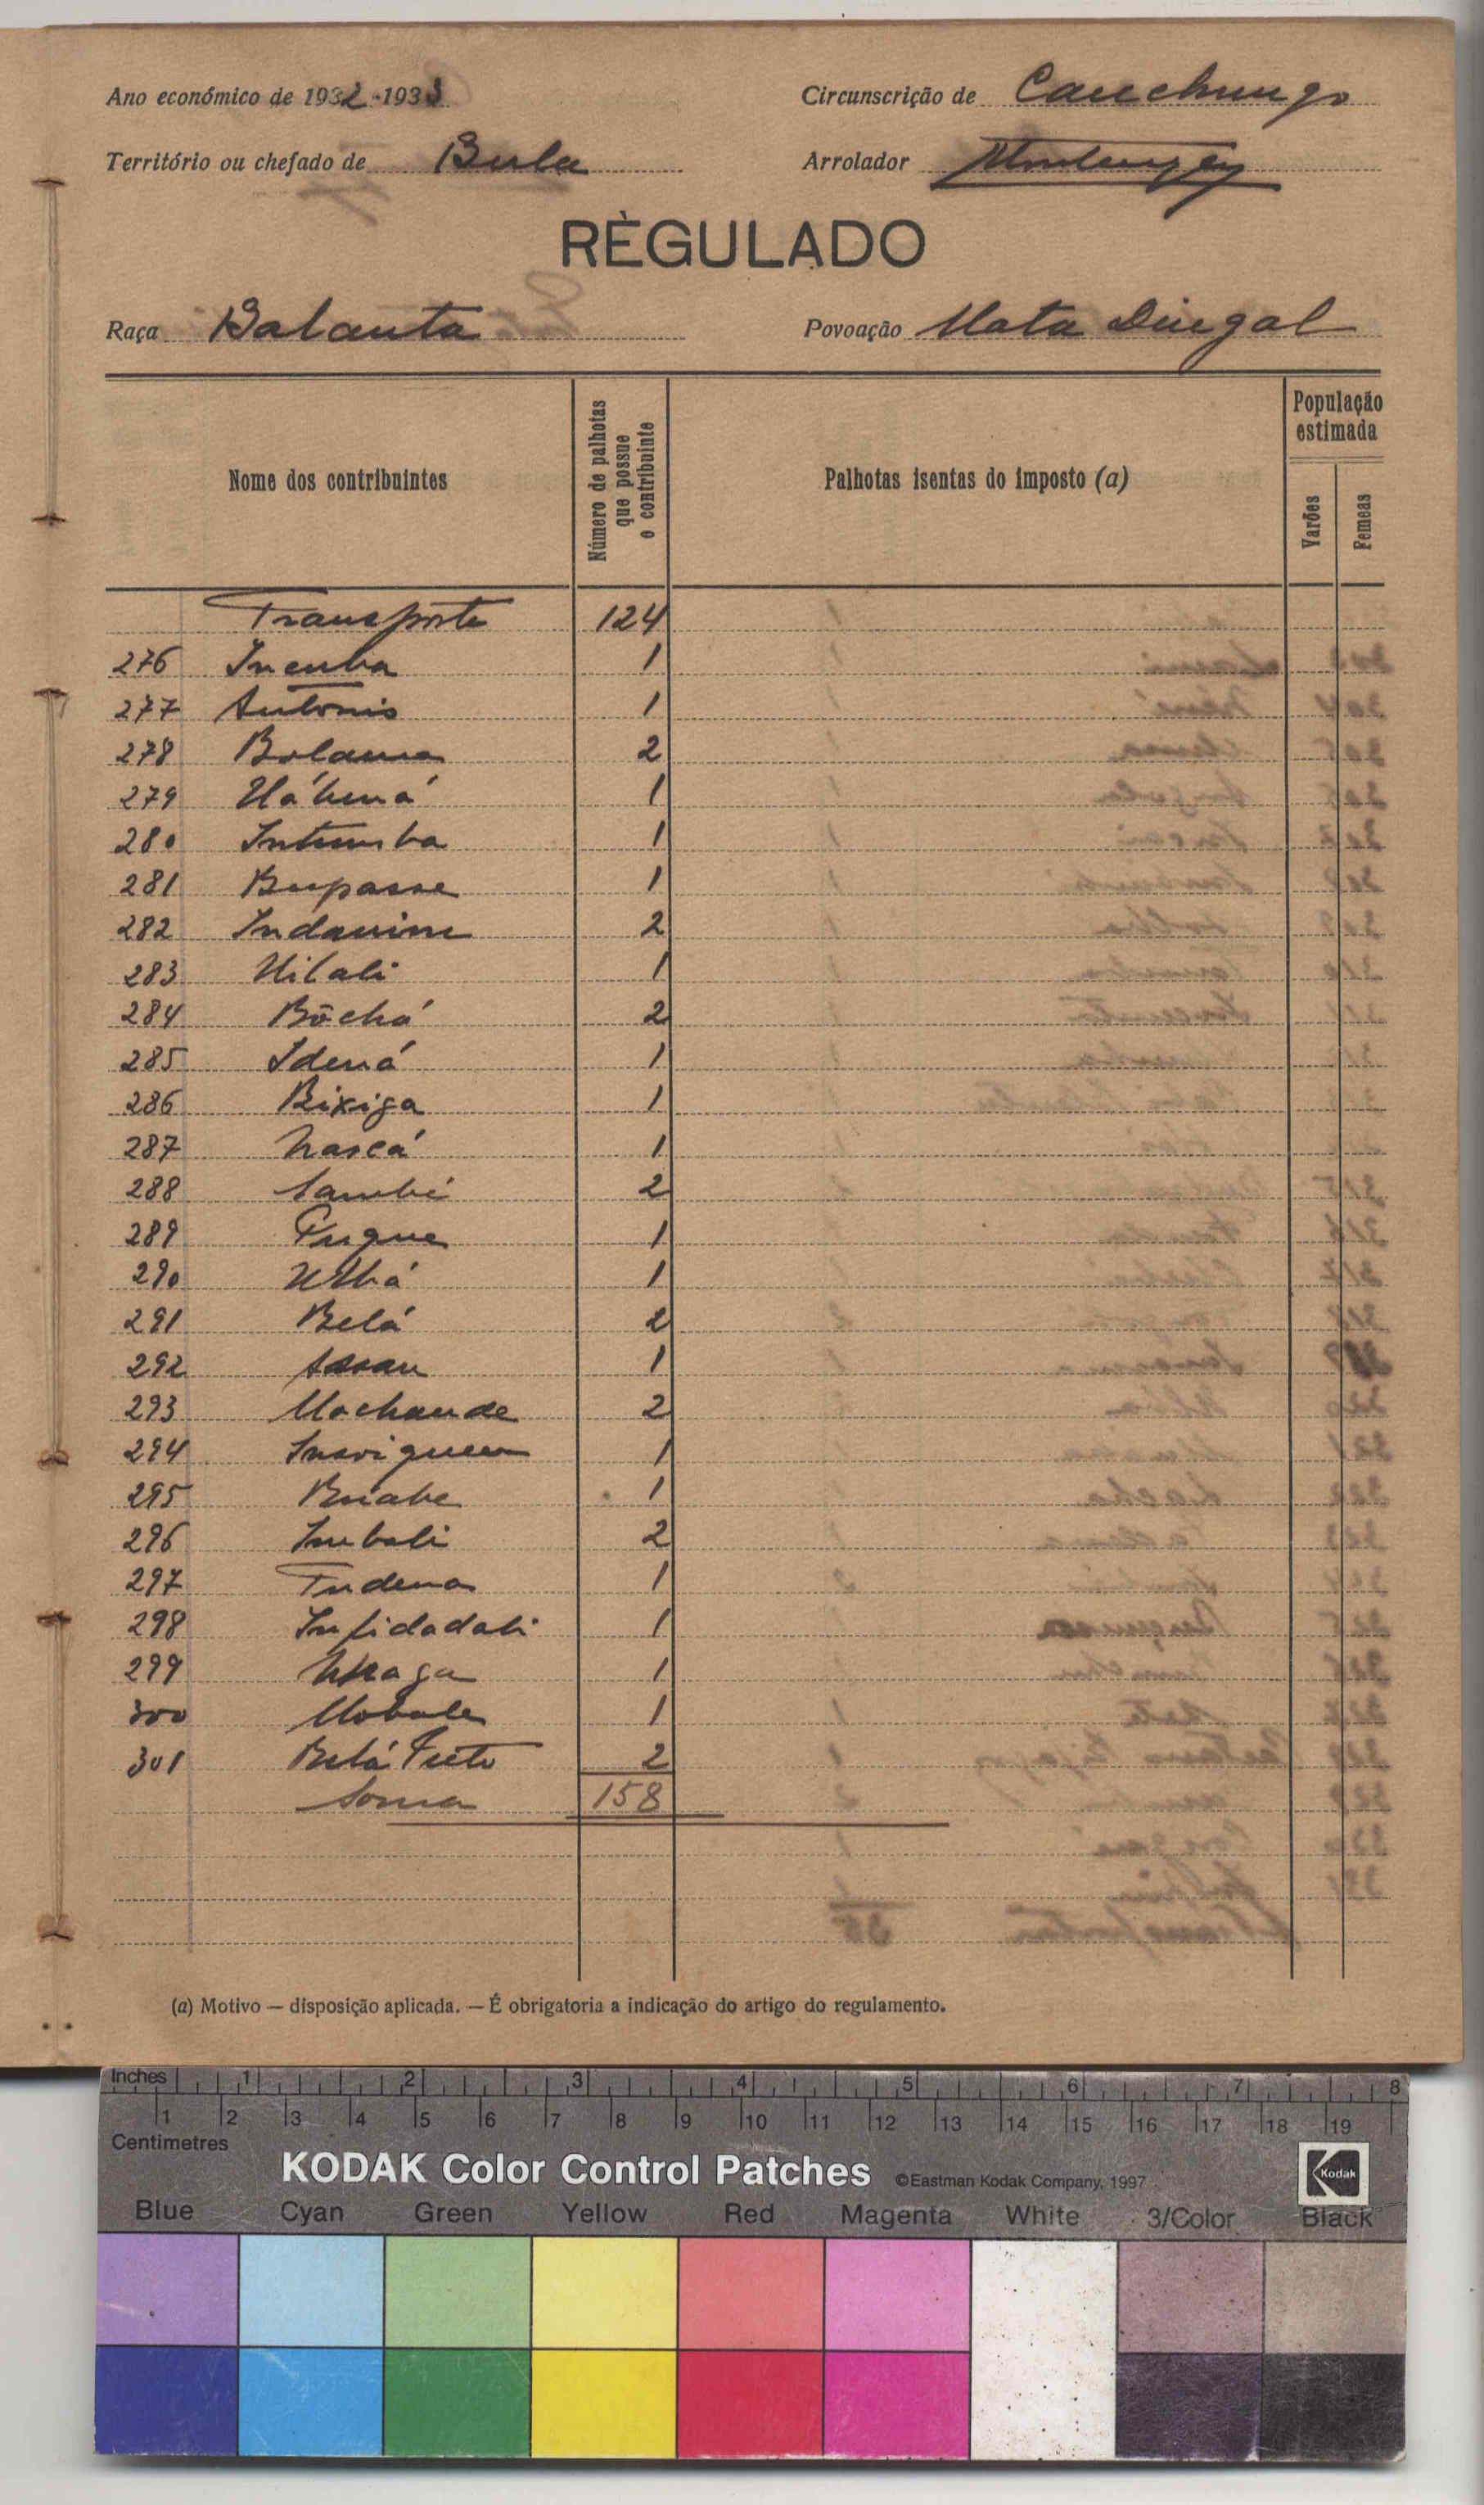 Ano económico de 1932-1933
Circunscrição de Canchungo
Território ou chefado de Bula
Arrolador
RÈGULADO
Raça Balanta
Povoação Mata Dingal
Nome dos contribuintes
Número de palhotas que possue o contribuinte
Palhotas isentas do imposto (a)
População estimada
Varões
Femeas
Transporte 124
276 Incuba 1
277 Antonio 1
278 Bolama 2
279 1
280 Intumba 1
281 Bupasse 1
282 2
283 1
284 Bochá 2
285 Idená 1
286 Bixiga 1
287 Nascá 1
288 Sambé 2
289 1
290 1
291 Belá 2
292 Assan 1
293 Mochande 2
294 1
295 Buabe 1
296 Imbali 2
297 1
298 Infidadali 1
299 1
300 1
301 Belá Preto 2
Soma 158
(a) Motivo — disposição aplicada. — É obrigatoria a indicação do artigo do regulamento.
Inches 1 2 3 4 5 6 7 8
1 2 3 4 5 6 7 8 9 10 11 12 13 14 15 16 17 18 19
Centimetres
KODAK Color Control Patches ©Eastman Kodak Company, 1997
Kodak
Blue Cyan Green Yellow Red Magenta White 3/Color Black